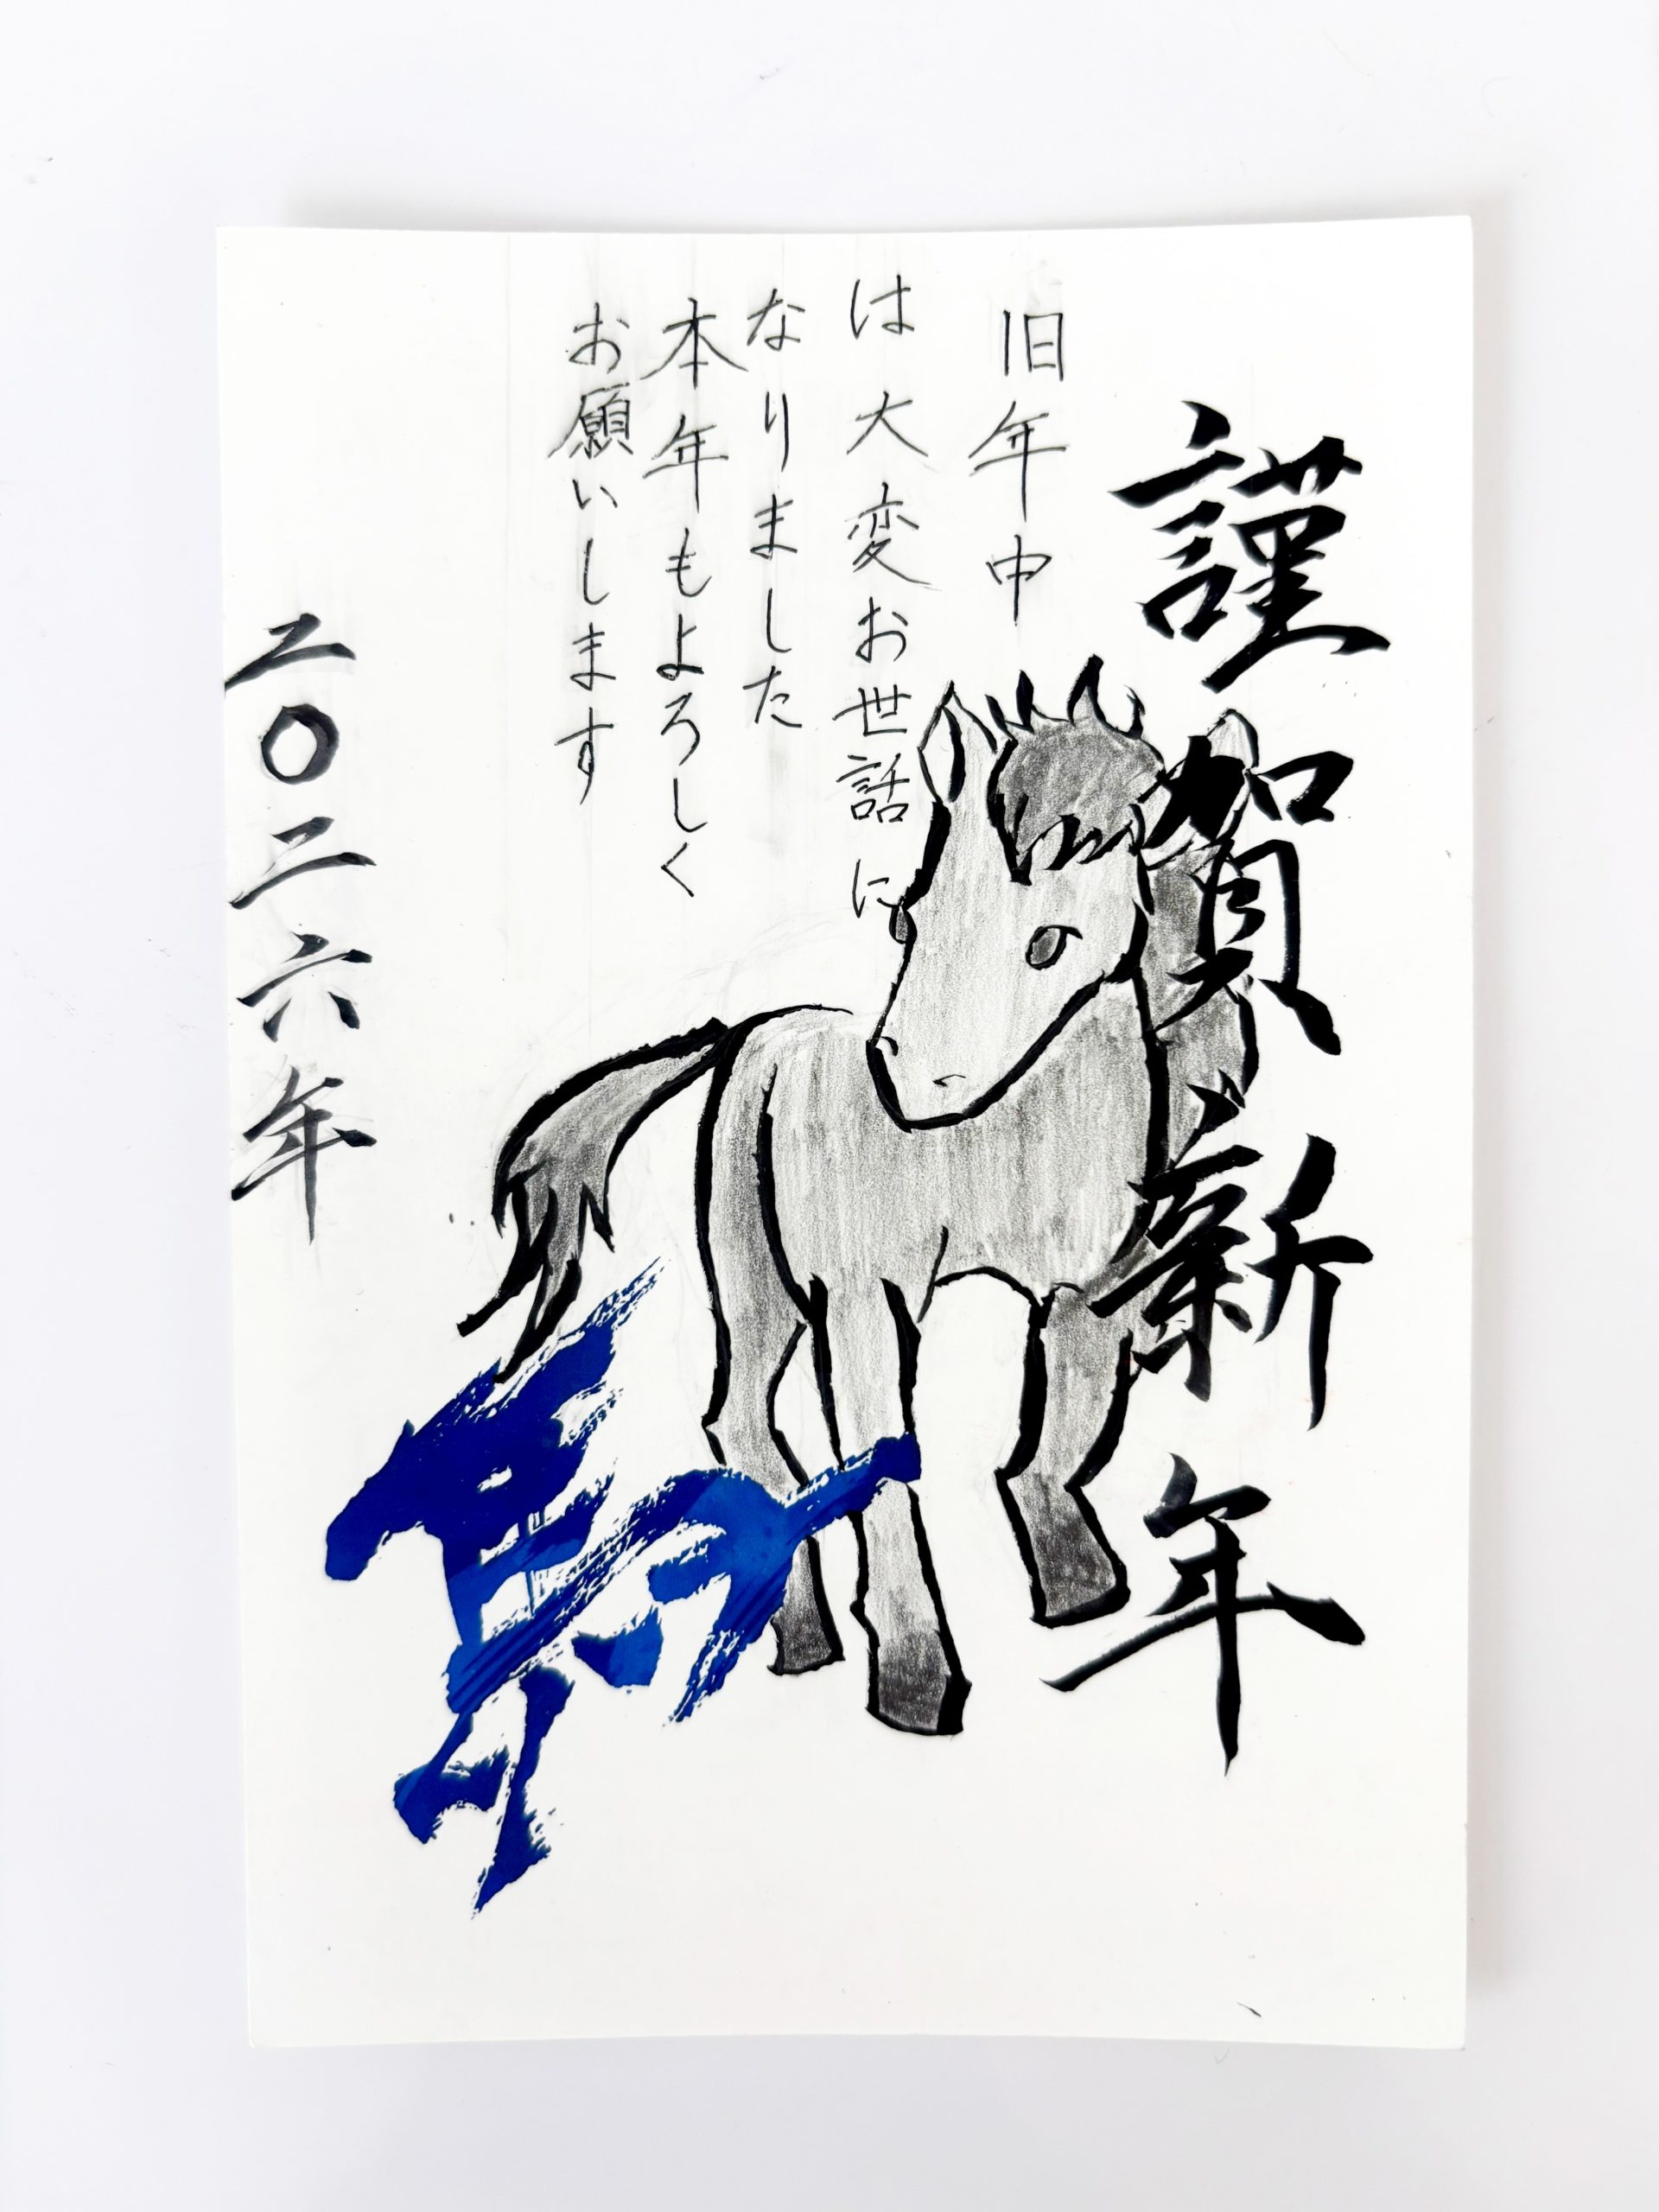 謹賀新年
旧年中
は大変お世話に
なりました
本年もよろしく
お願いします
二〇二六年